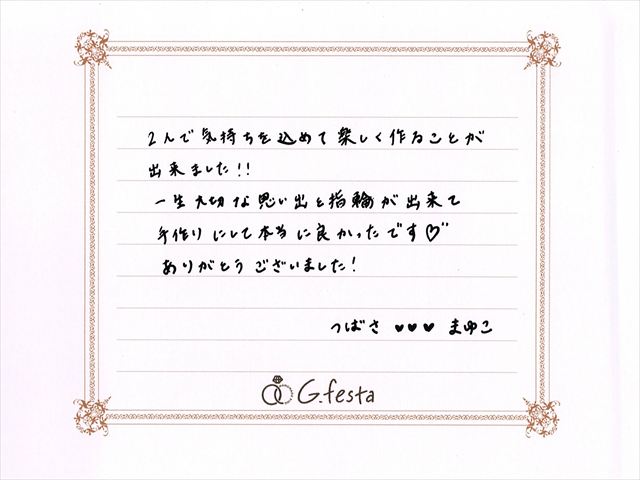 2人で気持ちを込めて楽しく作ることが
出来ました!!
一生大切な思い出と指輪が出来て
手作りにして本当に良かったです♡"
ありがとうございました!
つばさ ♥♥♥ まゆこ
G.festa